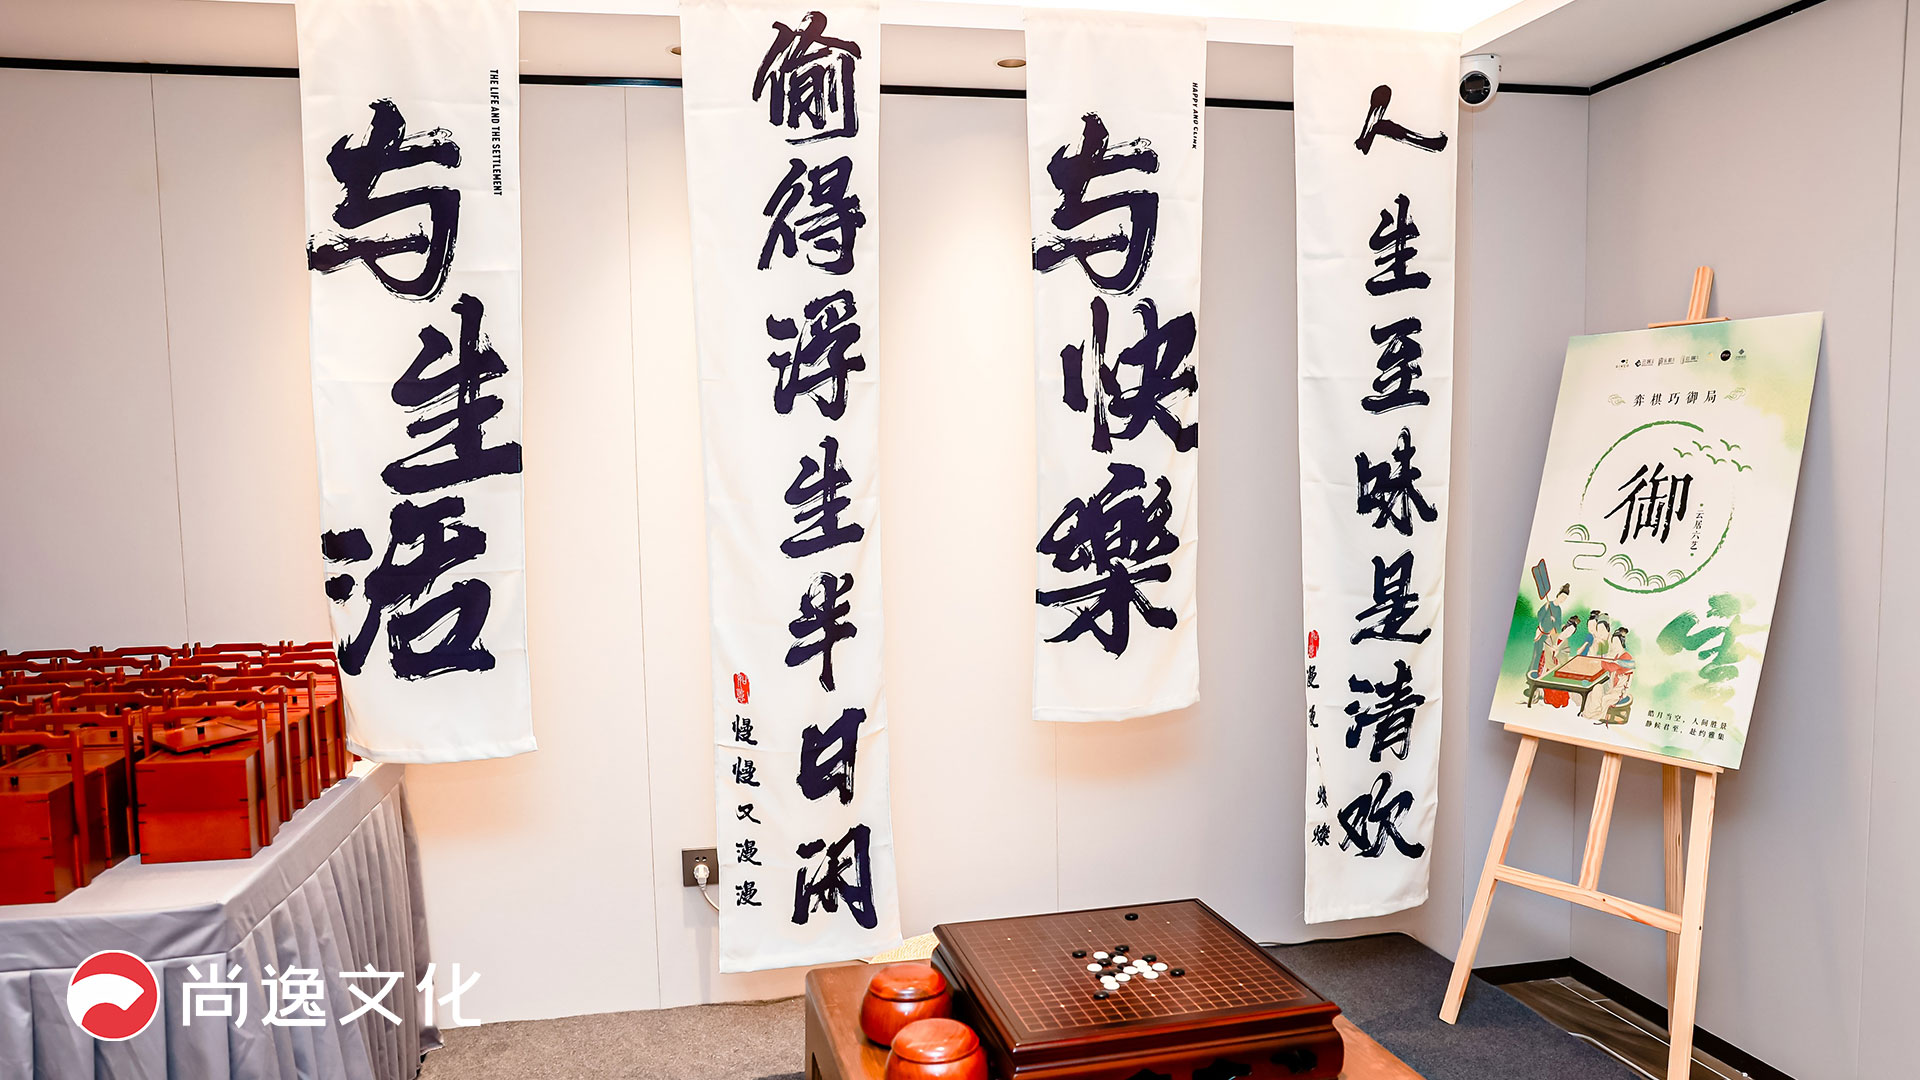 与生活
THE LIFE AND THE SETTLEMENT
偷得浮生半日闲
慢慢又漫漫
与快樂
HAPPY AND CLINK
人生至味是清欢
弈棋巧御局
御
云居六艺
皓月当空，人间胜景
静候君至，赴约雅集
尚逸文化